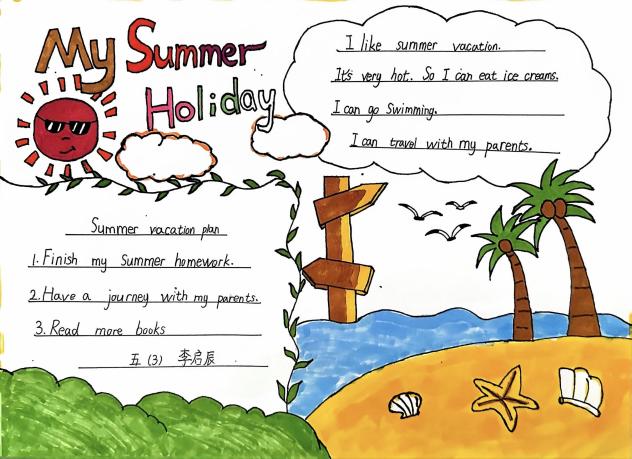 My Summer
Holiday
I like summer vacation.
It's very hot. So I can eat ice creams.
I can go Swimming.
I can travel with my parents.
Summer vacation plan
1. Finish my Summer homework.
2. Have a journey with my parents.
3. Read more books
五 (3) 李启辰